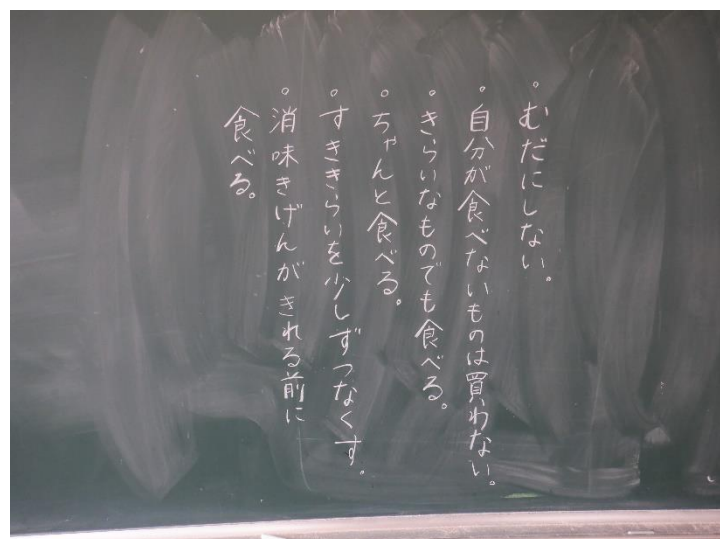 。むだにしない。
。自分が食べないものは買わない。
。きらいなものでも食べる。
。ちゃんと食べる。
。すききらいを少しずつなくす。
。消味きげんがきれる前に
食べる。